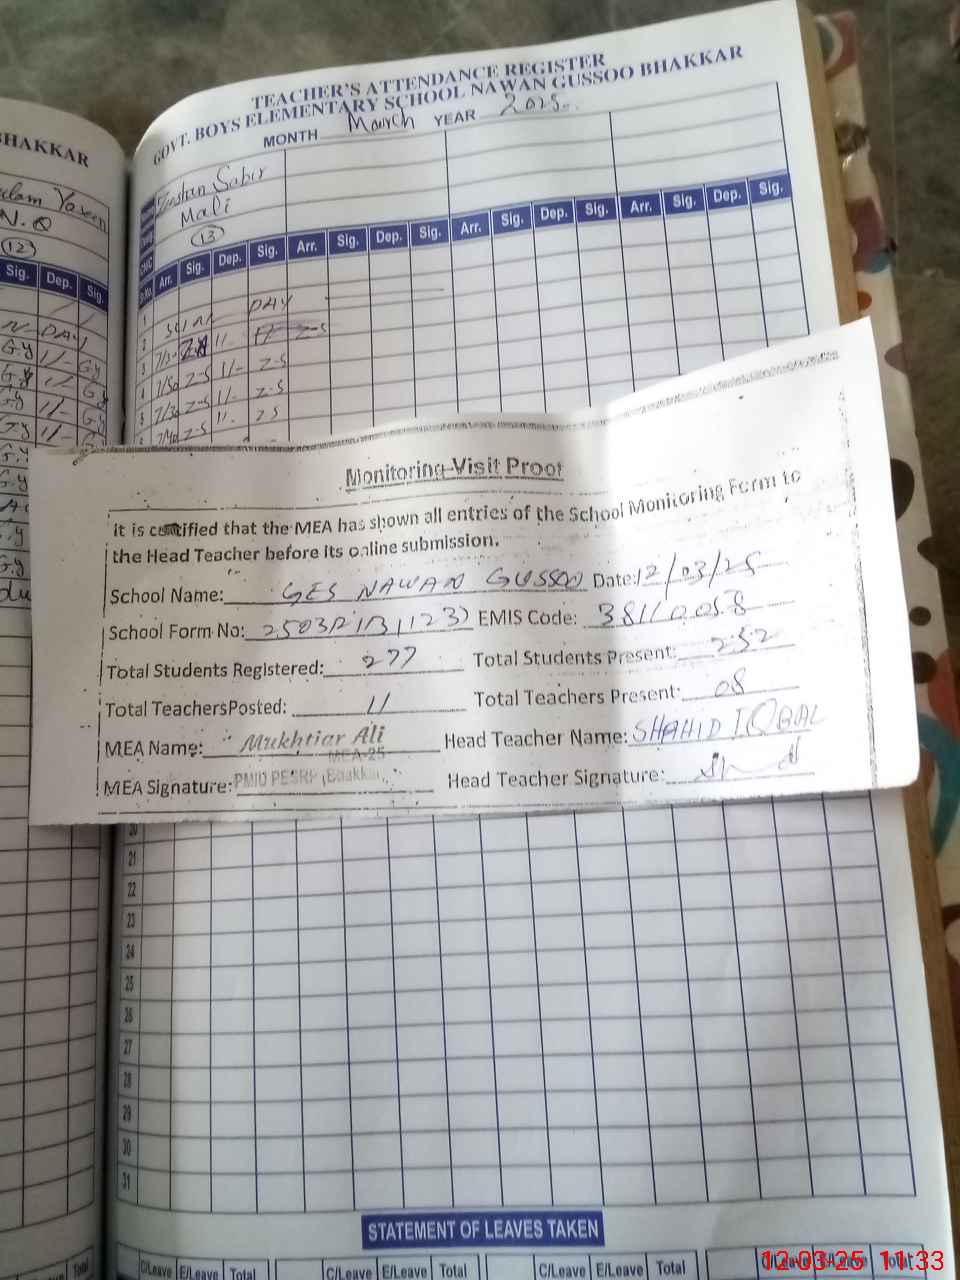 BHAKKAR
Yaseen
N.Q
(12)
Sig. Dep. Sig.
N- DAY
G.y 11- Gy
TEACHER'S ATTENDANCE REGISTER
GOVT. BOYS ELEMENTARY SCHOOL NAWAN GUSSOO BHAKKAR
MONTH March YEAR 2025
Sabir
Mali
(13)
Arr. Sig. Dep. Sig. Arr. Sig. Dep. Sig. Arr. Sig. Dep. Sig. Arr. Sig. Dep. Sig.
1
2 DAY
3 11- Z-S
4 7/30 Z-S 11- Z-S
5 7/30 Z-S 11- Z-S
Z-S 11- Z-S
Monitoring Visit Proof
it is certified that the MEA has shown all entries of the School Monitoring Form to
the Head Teacher before its online submission.
School Name: GES NAWAN GUSSOO Date: 12/03/25
School Form No: EMIS Code: 38110058
Total Students Registered: 277 Total Students Present: 252
Total TeachersPosted: 11 Total Teachers Present: 08
MEA Name: Mukhtiar Ali Head Teacher Name: SHAHID IQBAL
MEA-25
MEA Signature: PMIU PESRP (Bhakkar) Head Teacher Signature:
20
21
22
23
24
25
26
27
28
29
30
31
STATEMENT OF LEAVES TAKEN
Total C/Leave E/Leave Total C/Leave E/Leave Total C/Leave E/Leave Total C/Leave E/Leave Total
12-03-25 11:33